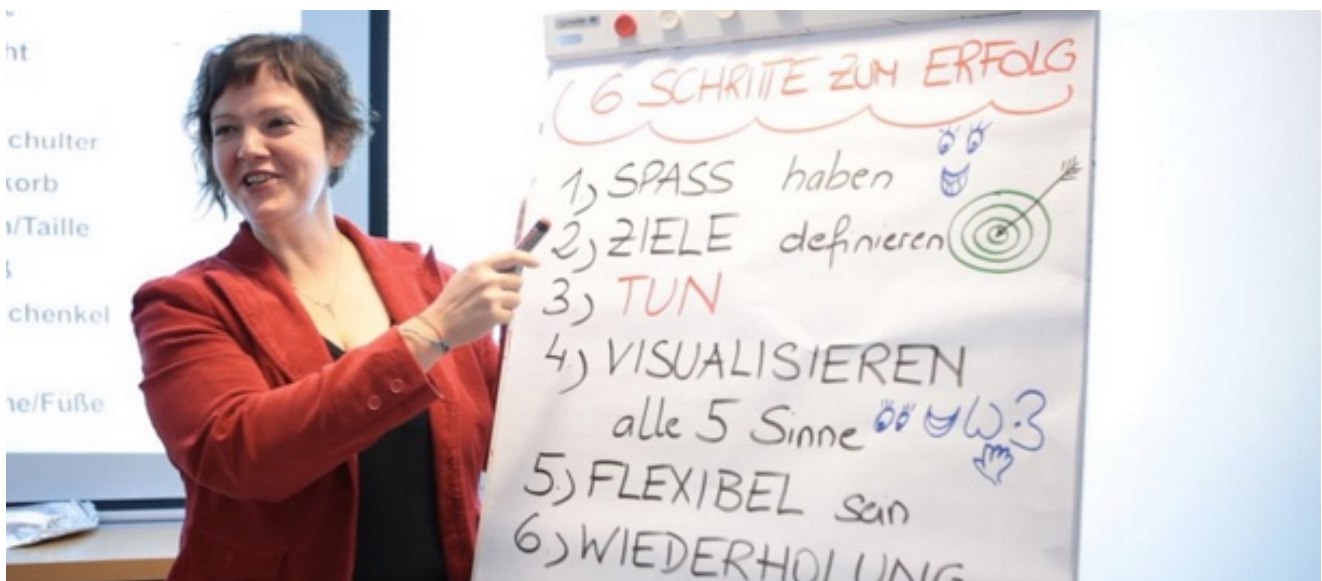 ht
chulter
korb
n/Taille
ß
chenkel
ne/Füße
6 SCHRITTE ZUM ERFOLG
1.) SPASS haben
2.) ZIELE definieren
3.) TUN
4.) VISUALISIEREN
alle 5 Sinne
5.) FLEXIBEL sein
6.) WIEDERHOLUNG